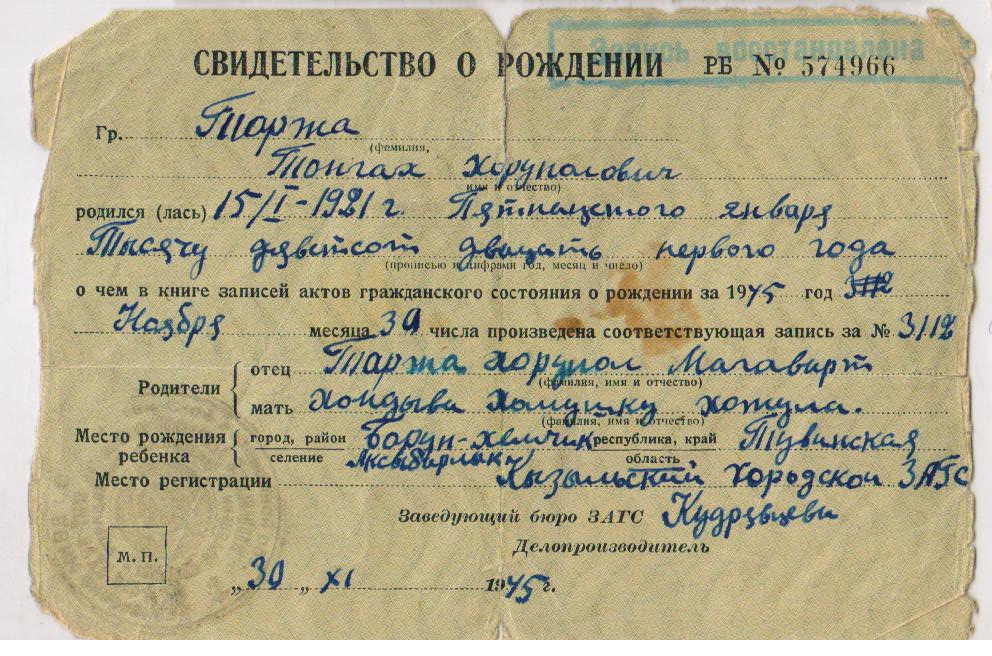 Запись восстановлена
СВИДЕТЕЛЬСТВО О РОЖДЕНИИ РБ № 574966
Гр. Таржа
(фамилия,
Тонгах Хорунолович
имя и отчество)
родился (лась) 15/I-1921 г. Пятнацетого января
Тысячу девятсот двацать первого года
(прописью и цифрами год, месяц и число)
о чем в книге записей актов гражданского состояния о рождении за 1945 год
Ноября месяца 30 числа произведена соответствующая запись за № 3112
Родители
отец Таржа Хорунол
(фамилия, имя и отчество)
мать
(фамилия, имя и отчество)
Место рождения ребенка
город, район Борун-хемчик республика, край Тувинская
селение область
Место регистрации Кызыльский городской ЗАГС
Заведующий бюро ЗАГС Кудрявцева
Делопроизводитель
М. П.
„30„ XI 1945 г.